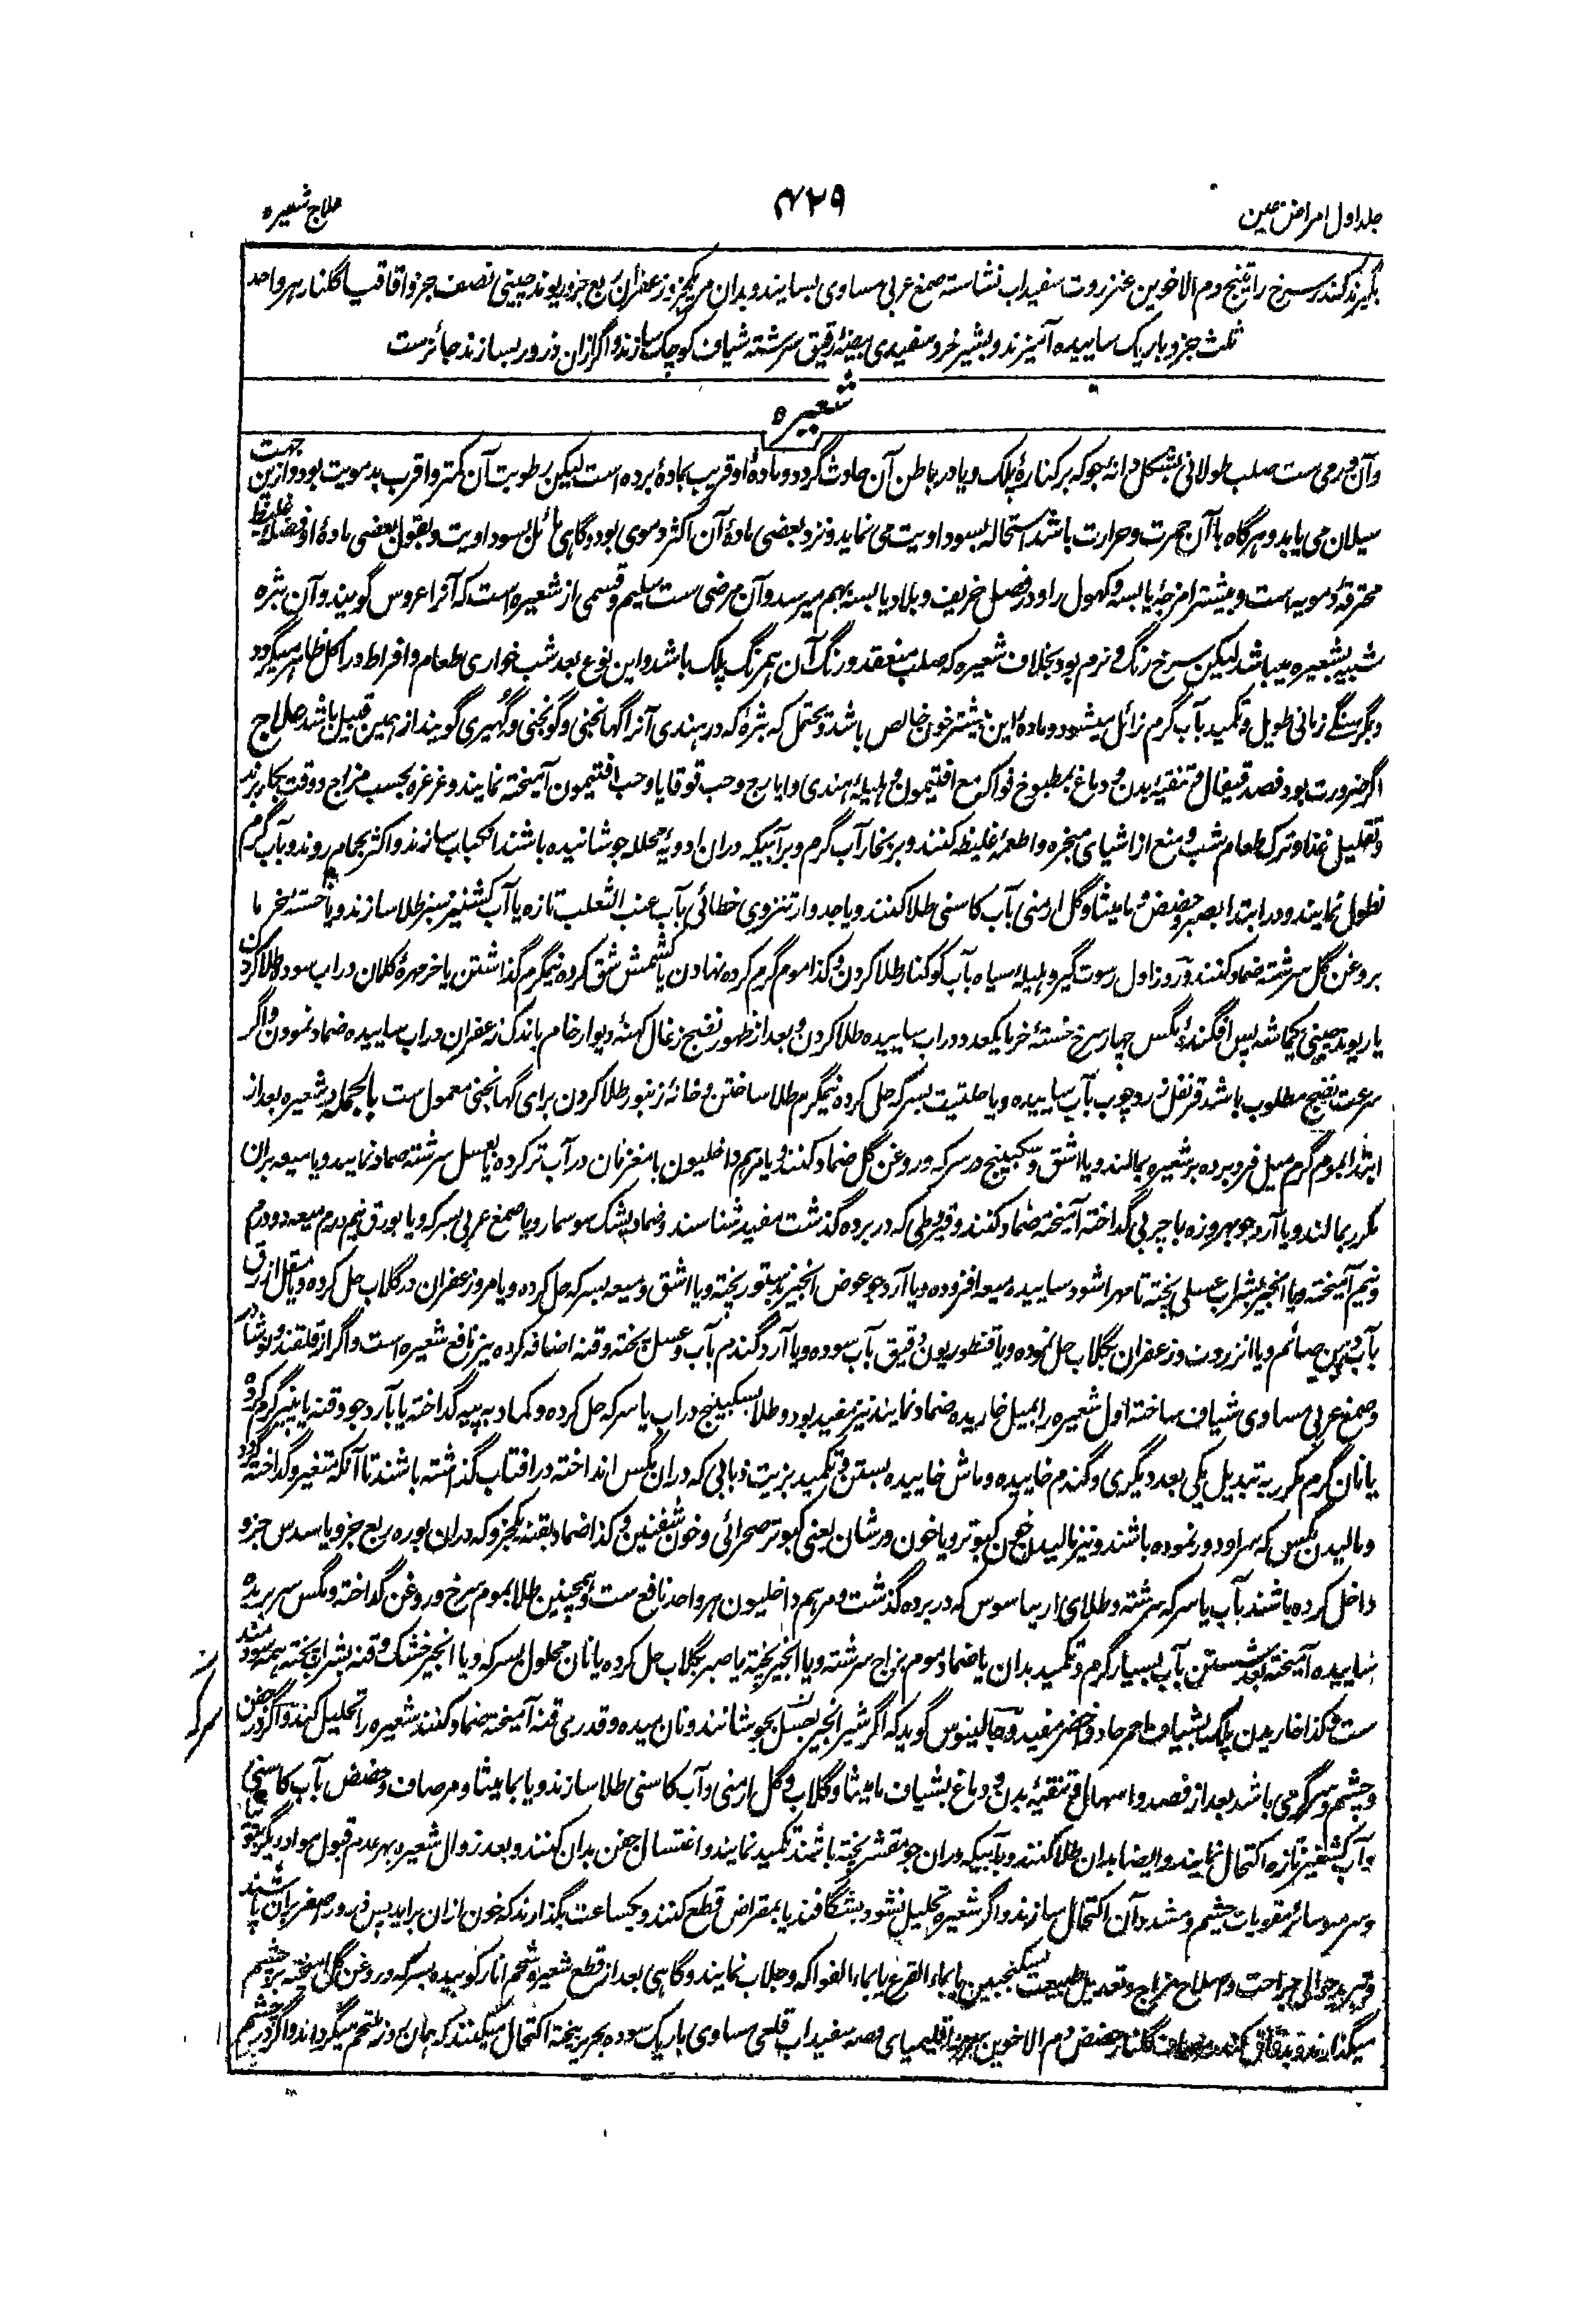 جلد اول امراض عین
۴۲۹
علاج شعیره
بگیرند کندر سرخ راتینج دم الاخوین عنزروت سفیداب نشاسته صمغ عربی مساوی بسایند و بدان مر یکجزو زعفران ربع جزو ریوند چینی نصف جزو اقاقیا گلنار هر واحد
ثلث جزو باریک ساییده آمیزند و بشیر خر و سفیدی بیضهٔ رقیق سرشته شیاف کوچک سازند و اگر ازان ذرور بسازند جائزست
شعیره
وآن ورمی ست صلب طولانی بشکل دانهٔ جو که بر کنارهٔ پلک و یا در باطن آن حادث گردد و مادهٔ او قریب بمادهٔ برده است لیکن رطوبت آن کمتر و اقرب بدمویت بود و ازین جهت
سیلان می یابد و هرگاه با آن حمرت و حرارت باشد استحاله بسوداویت می نماید و نزد بعضی مادهٔ آن اکثر دموی بود و گاهی مائل بسوداویت و بقول بعضی مادهٔ او فضلهٔ غلیظ
محترقهٔ دمویه است و بیشتر امزجهٔ یابسه و کهول را و در فصل خریف و بلاد یابسه بهم میرسد و آن مرضی ست سلیم و قسمی از شعیره است که آنرا عروس گویند و آن بثره
شبیه بشعیره میباشد لیکن سرخ رنگ و نرم بود بخلاف شعیره که صلب منعقد و رنگ آن همرنگ پلک باشد و این نوع بعد شب خواری طعام و افراط در اکل ظاهر میگردد
و بگرسنگی زمانی طویل و تکمید بآب گرم زائل میشود و مادهٔ این بیشتر خون خالص باشد و محتمل که بثرهٔ که در هندی آنرا گهانجنی و گونجنی و گهیری گویند از همین قبیل باشد علاج
اگر ضرورت بود فصد قیفال و تنقیهٔ بدن و دماغ بمطبوخ فواکه مع افتیمون و هلیلهٔ هندی و ایارج و حب قوقایا و حب افتیمون آمیخته نمایند و غرغره بحسب مزاج و وقت بکار برند
و تقلیل غذا و ترک طعام شب و منع از اشیای مبخره و اطعمهٔ غلیظ کنند و بر بخار آب گرم و بر آبیکه دران ادویهٔ محلله جوشانیده باشند انکباب سازند و اکثر بحمام روند و بآب گرم
نطول نمایند و در ابتدا بصبر و حضض و مامیثا و گل ارمنی بآب کاسنی طلا کنند و یا جدوار تنزوی خطائی بآب عنب الثعلب تازه یا آب کشنیز سبز طلا سازند و یا خستهٔ خرما
بروغن گل سرشته ضماد کنند و روز اول رسوت گیرو هلیلهٔ سیاه بآب کوکنار طلا کردن و کذا موم گرم کرده نهادن یا کشمش شق کرده نیمگرم گذاشتن یا خرمهرهٔ کلان دراب سوده طلا کردن
یا ریوند چینی یکماشه پس افگندهٔ مگس چهار سرخ خستهٔ خرما یکعدد دراب ساییده طلا کردن و بعد از ظهور نضج زغال کهنهٔ دیوار خام باندک زعفران دراب ساییده ضماد نمودن و اگر
سرعت نضج مطلوب باشد قرنفل زردچوب بآب ساییده و یا حلتیت بسرکه حل کرده نیمگرم طلا ساختن و خانهٔ زنبور طلا کردن برای گهانجنی معمول ست بالجمله در شعیره بعد از
ابتدا بموم گرم میل فرو برده بر شعیره بمالند و یا اشق و سکبینج در سرکه و روغن گل ضماد کنند و یا مرهم داخلیون با مغز نان در آب تر کرده بعسل سرشته ضماد نمایند و یا میعه بران
مکرر بمالند و یا آرد جو بهروزه با چربی گداخته آمیخته ضماد کنند و قیروطی که در برده گذشت مفید شناسند و ضماد پشک سوسمار و یا صمغ عربی بسرکه و یا بورق نیم درم میعه دو درم
و نیم آمیخته و یا انجیر بشراب عسلی پخته تا مهرا شود ساییده میعه افزوده و یا آرد جو عوض انجیر بدستور پخته و یا اشق و میعه بسرکه حل کرده و یا مر و زعفران در گلاب حل کرده و یا مقل ازرق
بآب دهن صائم و یا انزروت و زعفران بگلاب حل نموده و یا قنطوریون دقیق بآب سوده و یا آرد گندم بآب و عسل پخته و قنه اضافه کرده نیز نافع شعیره است و اگر از قلقند و نوشادر
و صمغ عربی مساوی شیاف ساخته اول شعیره را بمیل خاریده ضماد نمایند نیز مفید بود و طلا بسکبینج دراب یا سرکه حل کرده و کماد به پیه گداخته یا بآرد جو و قنه یا پنیر گرم کرده
یا نان گرم مکرر به تبدیل یکی بعد دیگری و گندم خاییده و ماش خاییده بستن و تکمید بزیت ذبابی که دران مگس انداخته در افتاب گذاشته باشند تا آنکه متغیر و گداخته گردد
و مالیدن مگس که سر او دور نموده باشند و نیز مالیدن خون کبوتر و یا خون ورشان یعنی کبوتر صحرائی و خون شفنین و کذا ضماد بقنه یکجزو که دران بوره ربع جزو یا سدس جزو
داخل کرده باشند بآب یا سرکه سرشته و طلای اریباسوس که در برده گذشت و مرهم داخلیون هر واحد نافع ست و همچنین طلا بموم سرخ و روغن گداخته و مگس سر بریده
ساییده آمیخته بعد شستن بآب بسیار گرم و تکمید بدان یا ضماد موم بزاج سرشته و یا انجیر پخته یا صبر بگلاب حل کرده یا نان محلول بسرکه و یا انجیر خشک و قنه بشراب پخته همه سودمند
ست و کذا خاریدن پلک بشیاف احمر حاد و اخضر مفید و جالینوس گوید که اگر شیر انجیر بعسل بجوشانند و نان میده و قدری قنه آمیخته ضماد کنند شعیره را تحلیل کند و اگر در جفن
و چشم و سر گرمی باشد بعد از فصد و اسهال و تنقیهٔ بدن و دماغ بشیاف مامیثا و گلاب و گل ارمنی و آب کاسنی طلا سازند و یا بمامیثا و مر صاف و حضض بآب کاسنی
و آب کشنیز تازه اکتحال نمایند و ایضا بدان طلا کنند و بآبیکه دران جو مقشر پخته باشند تکمید نمایند و اغتسال جفن بدان کنند و بعد زوال شعیره بهر عدم قبول مواد دیگر
و سرمه و سائر مقویات چشم و مشددات آن اکتحال سازند و اگر شعیره تحلیل نشود بشگافند یا بمقراض قطع کنند و یکساعت بگذارند که خون ازان براید پس ذرور اصفر بران پاشند
و تبرید حوالی جراحت و اصلاح مزاج و تعدیل طبیعت بسکنجبین یا بماء القرع یا بماء الفواکه و جلاب نمایند و گاهی بعد از قطع شعیره شحم انار کوبیده بسرکه و روغن گل آمیخته بر چشم
میگذارند و گلنار حضض دم الاخوین اقلیمیای فضه سفیداب قلعی مساوی باریک سوده بحریر پخته اکتحال میکنند که همان روز ملتحم میگرداند و اگر در چشم
سرکه